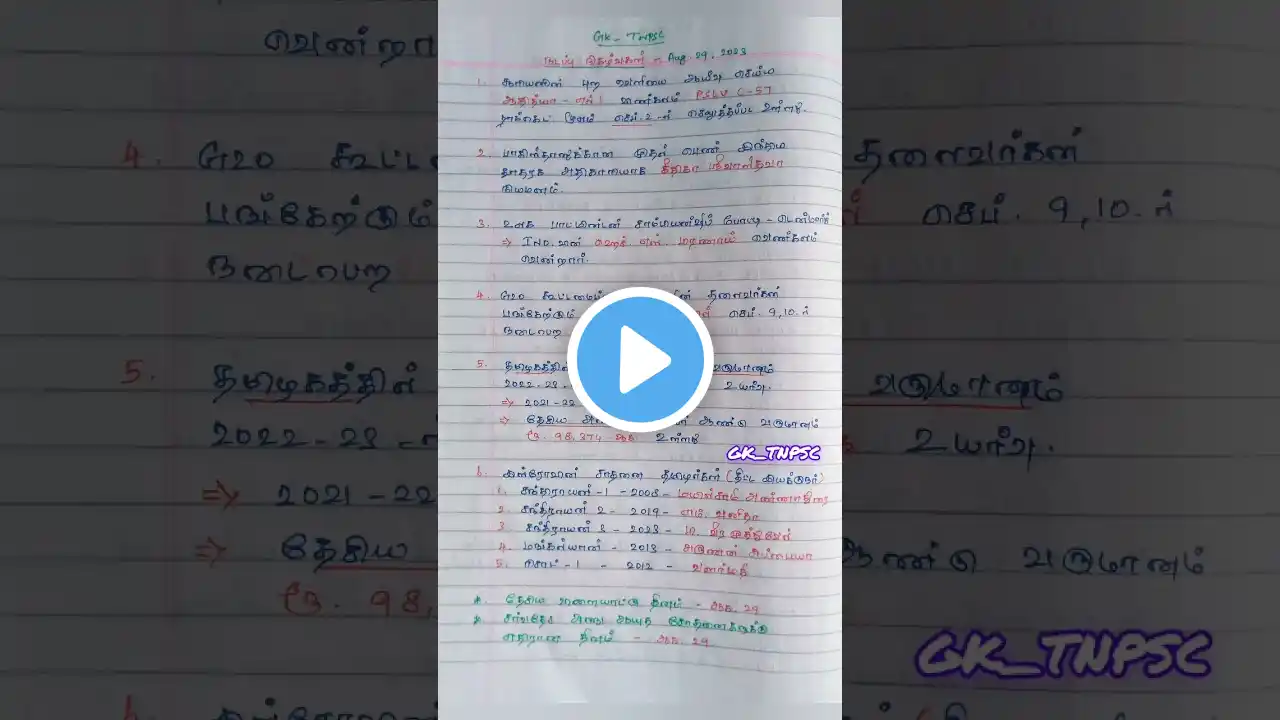 GK_ TNPSC
நடப்பு நிகழ்வுகள் - Aug. 29, 2023
1. சூரியனின் புற வெளியை ஆய்வு செய்ய
ஆதித்யா - எல் 1 விண்கலம் PSLV C-57
ராக்கெட் மூலம் செப். 2-ல் செலுத்தப்பட உள்ளது.
2. பாகிஸ்தானுக்கான முதல் பெண் இந்திய
தூதரக அதிகாரியாக கீதிகா ஸ்ரீவாஸ்தவா
நியமனம்.
3. உலக பாட்மிண்டன் சாம்பியன்ஷிப் போட்டி - டென்மார்க்
⇒ IND.வின் ஹெச் எஸ். பிரணாய் வெண்கலம்
வென்றார்.
4. G20 கூட்டமைப் தலைவர்கள்
பங்கேற்கும் செப். 9,10.ல்
நடைபெற
5. தமிழகத்தின் வருமானம்
2022-23. உயர்வு.
⇒ 2021-22
⇒ தேசிய ஆண்டு வருமானம்
ரூ. 98,374 ஆக உள்ளது
GK_TNPSC
6. இஸ்ரோவின் சாதனை தமிழர்கள் (திட்ட இயக்குநர்)
1. சந்திராயன் -1 - 2008 - மயில்சாமி அண்ணாதுரை
2. சந்திராயன் 2 - 2019 - எம். வனிதா
3. சந்திராயன் 3 - 2023 - ப. வீர முத்துவேல்
4. மங்கள்யான் - 2013 - அருணன் சுப்பையா
5. ரிசாட் -1 - 2012 - வளர்மதி
* தேசிய விளையாட்டு தினம் - ஆக. 29
* சர்வதேச அணு ஆயுத சோதனைகளுக்கு
எதிரான தினம் - ஆக. 29